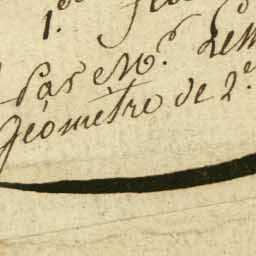 1.er
Par Mr. Lem
Géomètre de 2.e